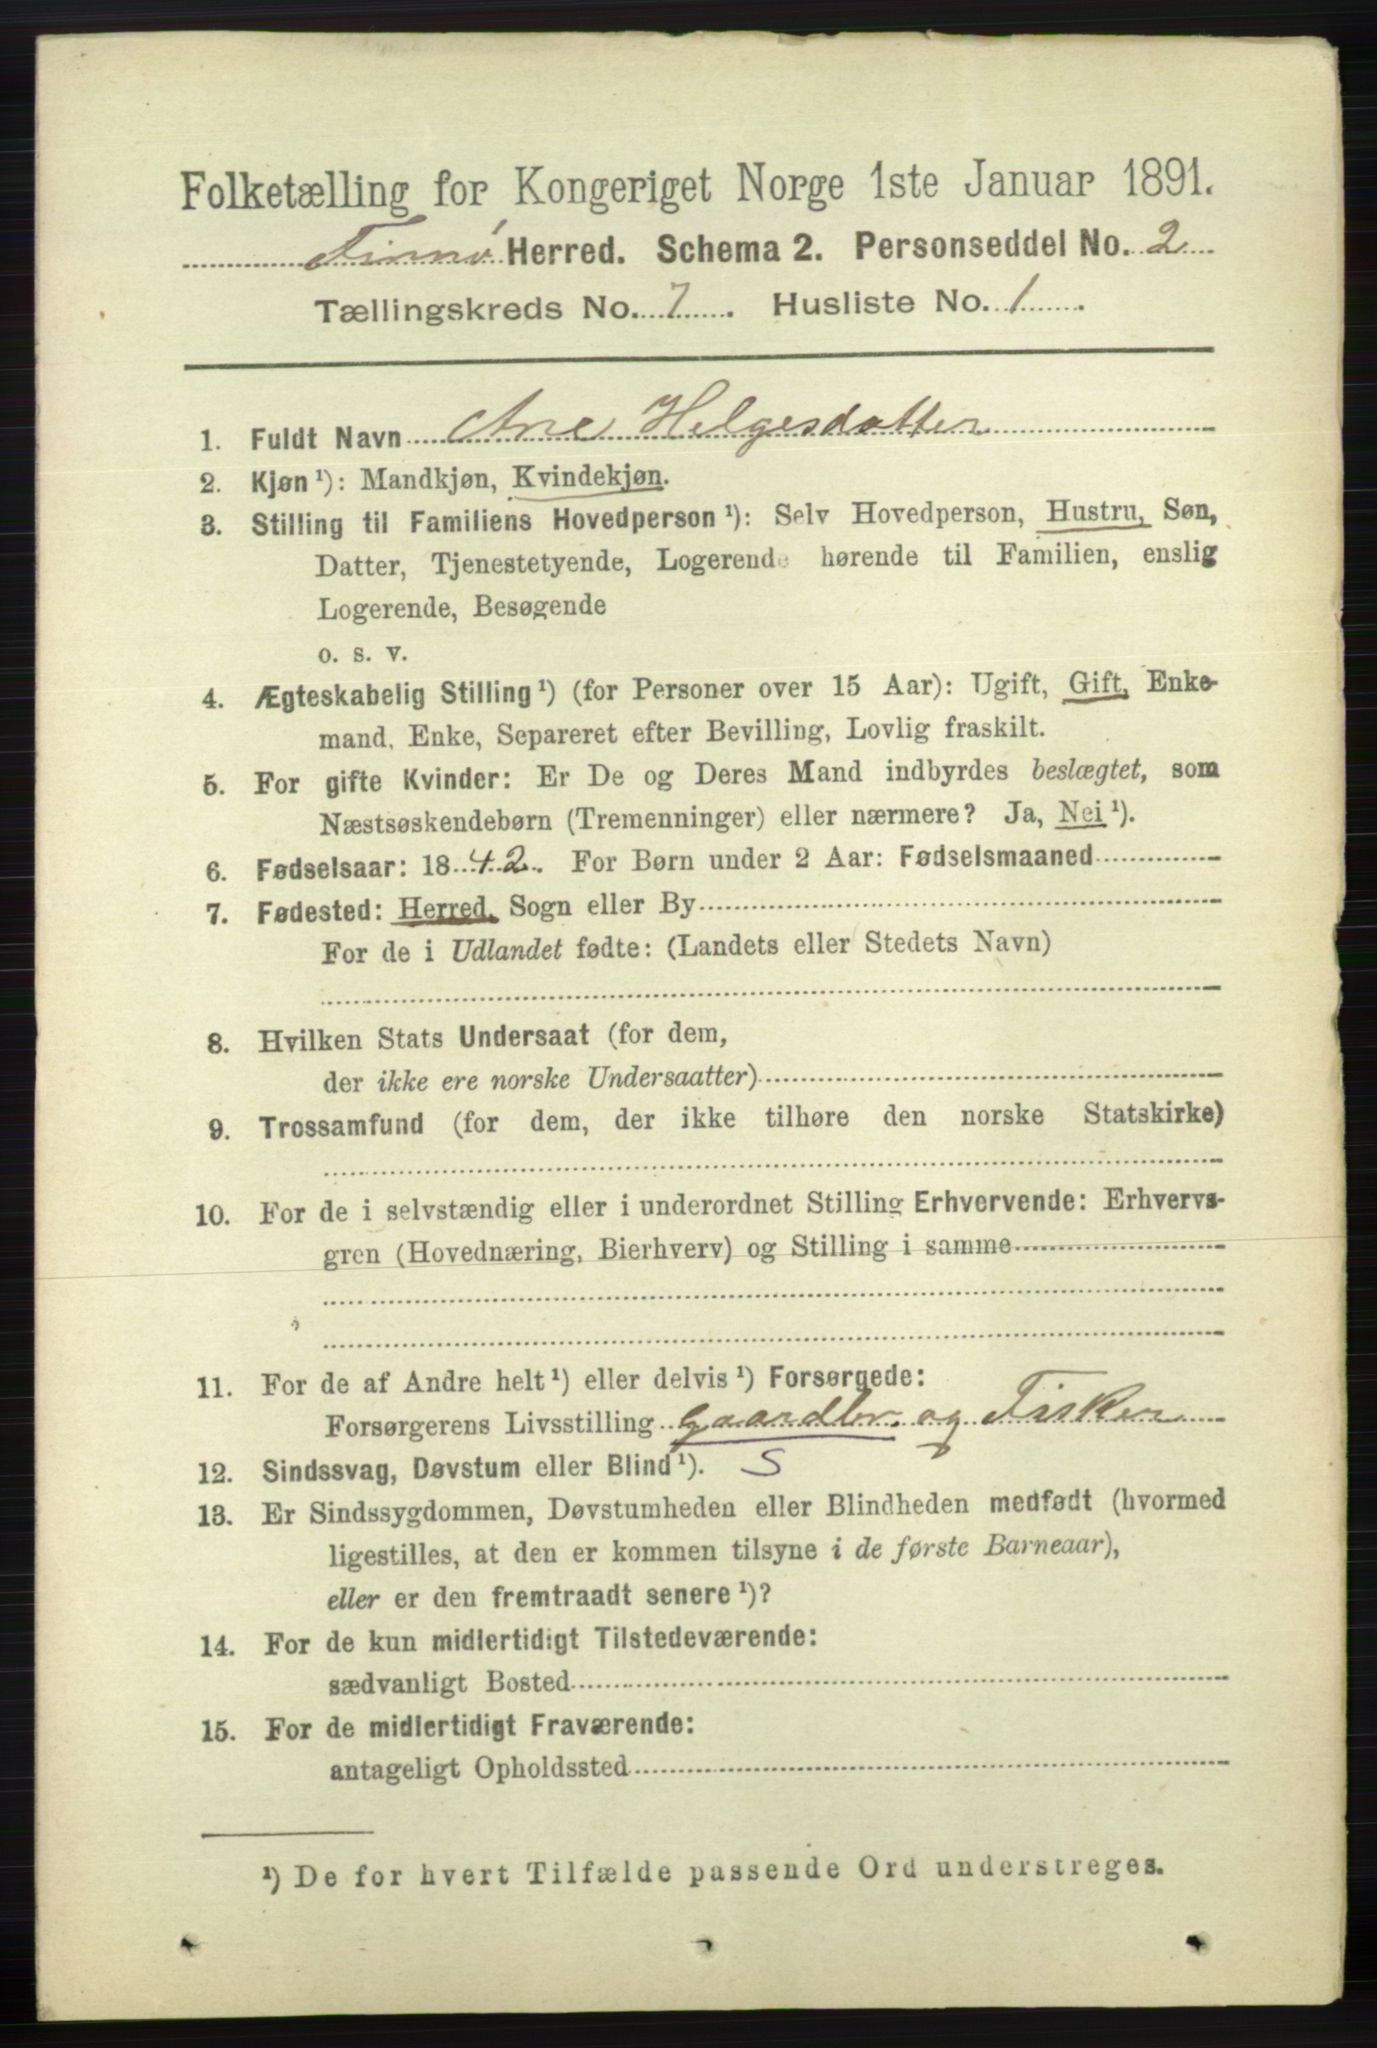 Folketælling for Kongeriget Norge 1ste Januar 1891.
Finnø Herred. Schema 2. Personseddel No. 2
Tællingskreds No. 7. Husliste No. 1
1. Fuldt Navn Ane Helgesdatter
2. Kjøn ¹): Mandkjøn, Kvindekjøn.
3. Stilling til Familiens Hovedperson ¹): Selv Hovedperson, Hustru, Søn,
Datter, Tjenestetyende, Logerende hørende til Familien, enslig
Logerende, Besøgende
o. s. v.
4. Ægteskabelig Stilling ¹) (for Personer over 15 Aar): Ugift, Gift, Enke-
mand, Enke, Separeret efter Bevilling, Lovlig fraskilt.
5. For gifte Kvinder: Er De og Deres Mand indbyrdes beslægtet, som
Næstsøskendebørn (Tremenninger) eller nærmere? Ja, Nei ¹).
6. Fødselsaar: 1842. For Børn under 2 Aar: Fødselsmaaned
7. Fødested: Herred, Sogn eller By
For de i Udlandet fødte: (Landets eller Stedets Navn)
8. Hvilken Stats Undersaat (for dem,
der ikke ere norske Undersaatter)
9. Trossamfund (for dem, der ikke tilhøre den norske Statskirke)
10. For de i selvstændig eller i underordnet Stilling Erhvervende: Erhvervs-
gren (Hovednæring, Bierhverv) og Stilling i samme
11. For de af Andre helt ¹) eller delvis ¹) Forsørgede:
Forsørgerens Livsstilling gaardbr. og Fisker
12. Sindssvag, Døvstum eller Blind ¹). S
13. Er Sindssygdommen, Døvstumheden eller Blindheden medfødt (hvormed
ligestilles, at den er kommen tilsyne i de første Barneaar),
eller er den fremtraadt senere ¹)?
14. For de kun midlertidigt Tilstedeværende:
sædvanligt Bosted
15. For de midlertidigt Fraværende:
antageligt Opholdssted
¹) De for hvert Tilfælde passende Ord understreges.